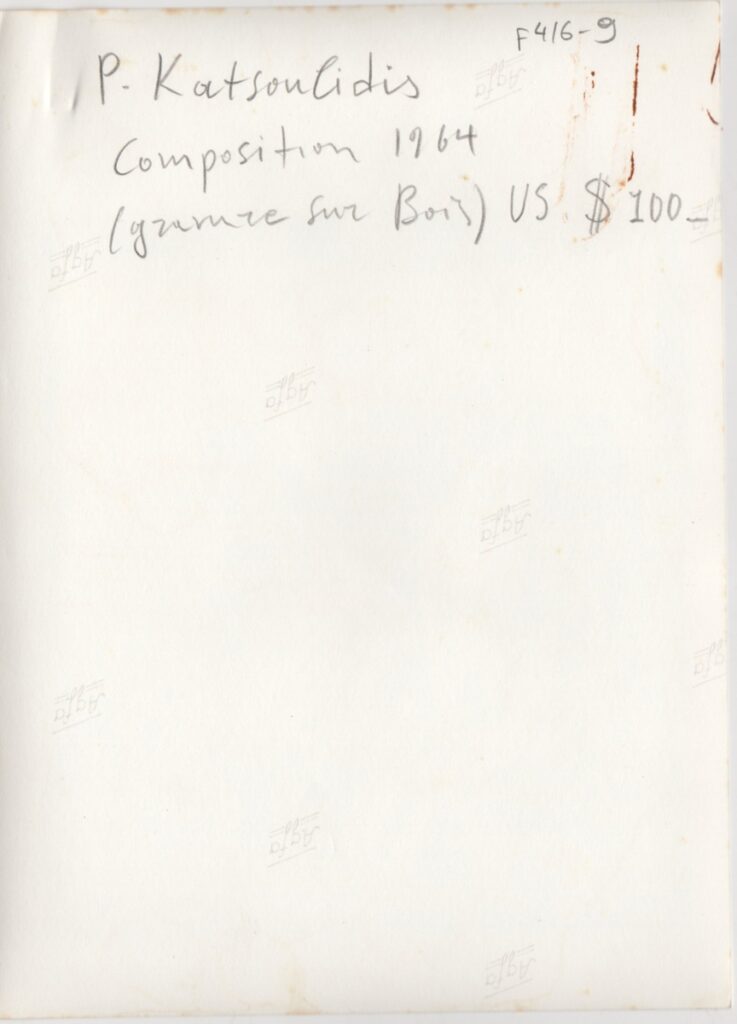 F416-9
P. Katsoulidis
Composition 1964
(gravure sur Bois) US $ 100-
Agfa
Agfa
Agfa
Agfa
Agfa
Agfa
Agfa
Agfa
Agfa